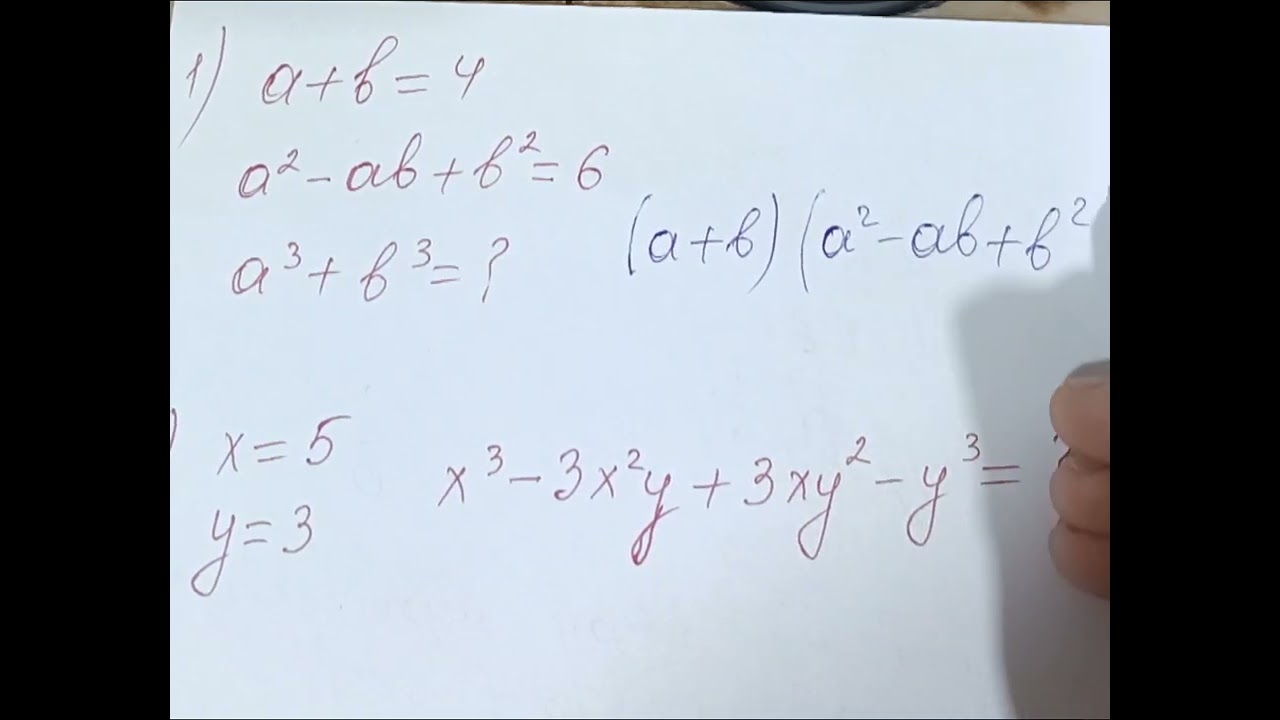 1) a+b=4
a²-ab+b²=6
a³+b³=?
(a+b)(a²-ab+b²
) x=5
y=3
x³-3x²y+3xy²-y³=